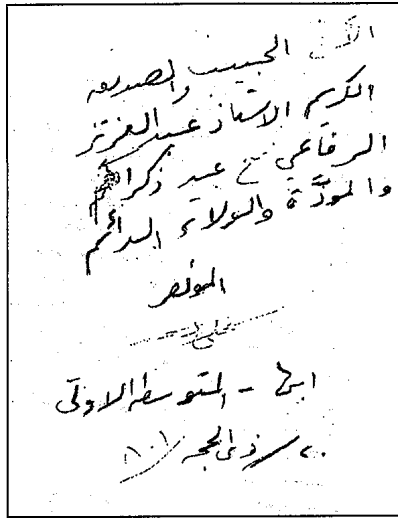 الأخ الحبيب والصديق
الكريم الاستاذ عبد العزيز
الرفاعي مع عبير ذكراكم
والمودَّة والولاء الدائم
المؤلف
ابها - المتوسطة الاولى
٢٠/ذي الحجه/